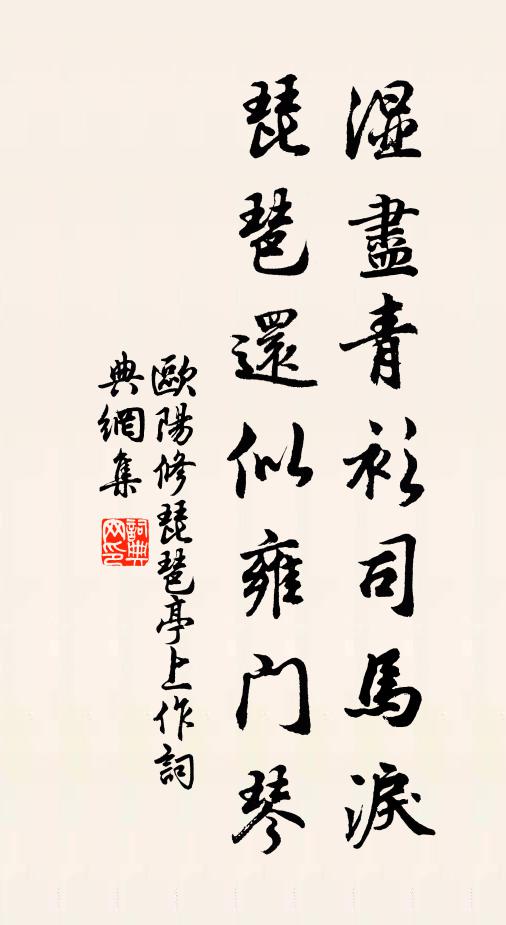 濕盡青衫司馬淚
琵琶還似雍門琴
歐陽修琵琶亭上作詞
典網集
詞典网印